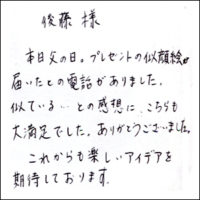 後藤 様
本日父の日。プレゼントの似顔絵が
届いたとの電話がありました。
似ている…との感想に、こちらも
大満足でした。ありがとうございました。
これからも楽しいアイデアを
期待しております。